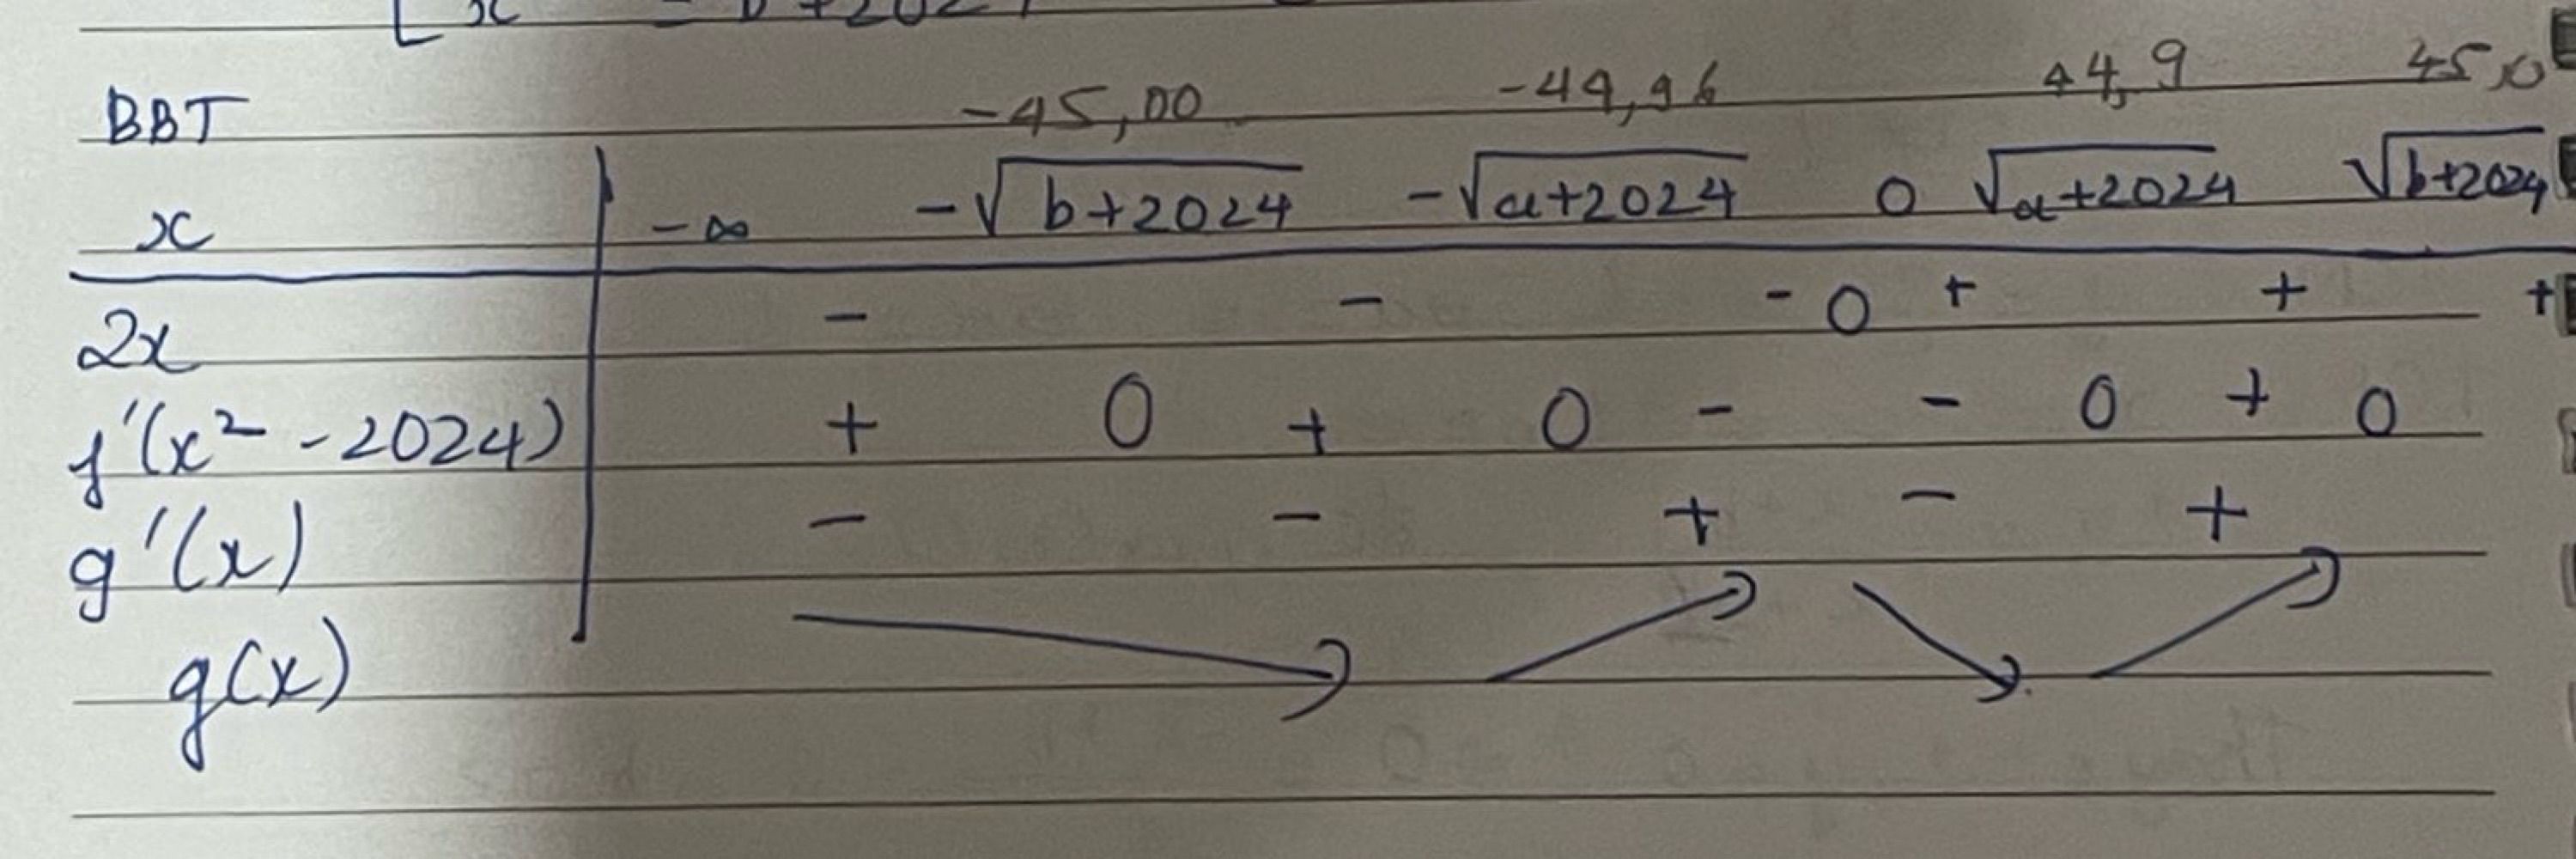 BBT -45,00 -44,96 44,9 45,0
x -∞ -√b+2024 -√a+2024 0 √a+2024 √b+2024
2x - - - 0 + + +
f'(x² - 2024) + 0 + 0 - - 0 + 0
g'(x) - - + - +
g(x)